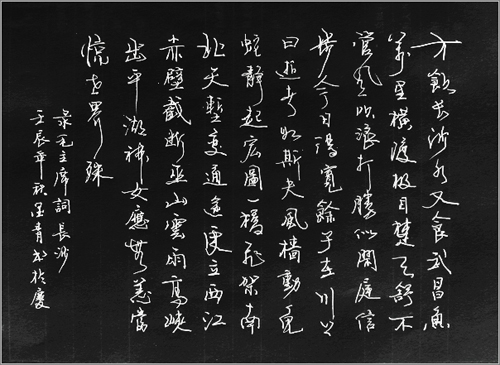 才飲長沙水又食武昌魚
萬里橫渡極目楚天舒不
管風吹浪打勝似閑庭信
步今日得寬餘子在川上
曰逝者如斯夫風檣動龜
蛇靜起宏圖一橋飛架南
北天塹變通途更立西江
赤壁截斷巫山雲雨高峽
出平湖神女應無恙當
驚世界殊
录毛主席詞長沙
壬辰年秋墨青書於慶